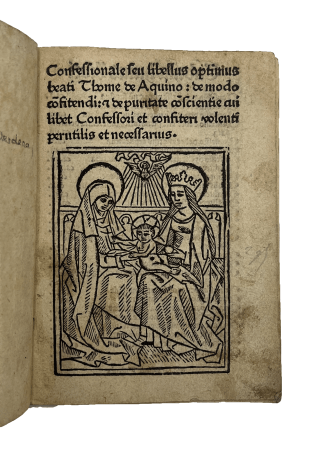 Confessionale seu libellus optimus
beati Thome de Aquino: de modo
cōfitendi: ⁊ de puritate cōscientie cui
libet Confessori et confiteri volenti
perutilis et necessarius.